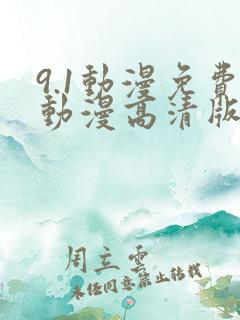 9.1動漫免費
動漫高清版
周立雲
未经同意禁止转载